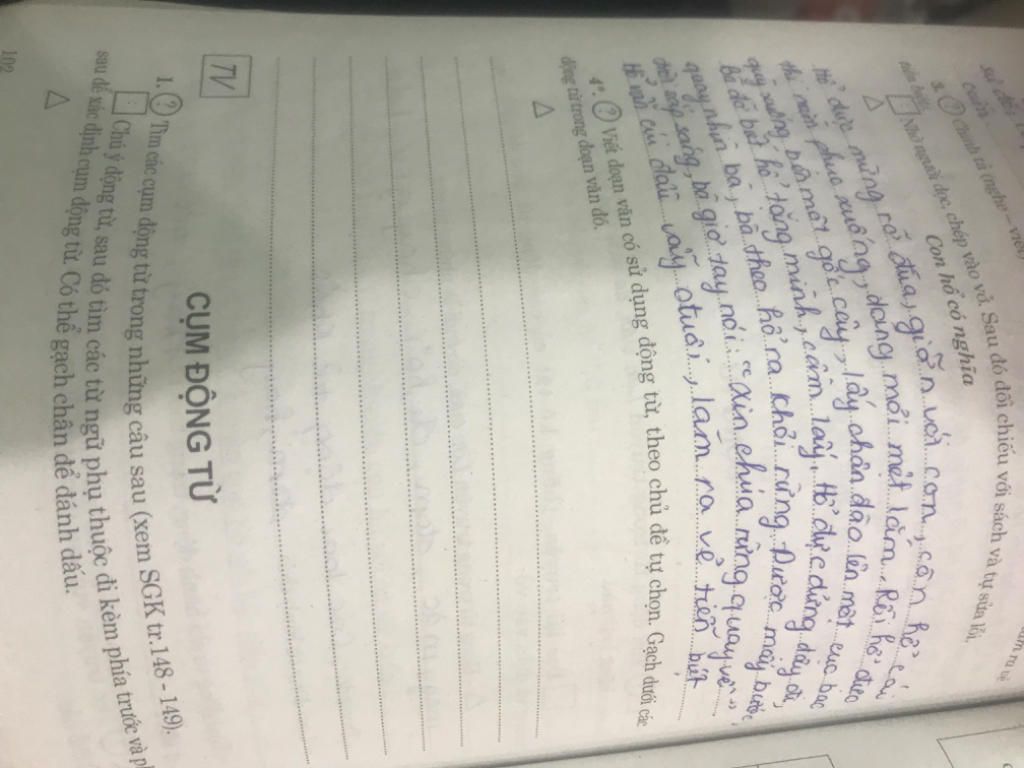 3. ? Chính tả (nghe – viết)
Nhờ người đọc, chép vào vở. Sau đó đối chiếu với sách và tự sửa lỗi,
Con hổ có nghĩa
Hổ đực mừng rỡ đùa giỡn với con, còn hổ cái
thì nằm phục xuống, dáng mỏi mệt lắm. Rồi hổ đực
quỳ xuống bên một gốc cây, lấy chân đào lên một cục bạc
bà đỡ biết hổ tặng mình, cầm lấy. Hổ đực đứng dậy đi,
quay nhìn bà, bà theo hổ ra khỏi rừng. Được mấy bước,
trời sắp sáng, bà giơ tay nói: "Xin chúa rừng quay về",
Hổ vẫn cúi đầu vẫy đuôi, làm ra vẻ tiễn biệt
4*. ? Viết đoạn văn có sử dụng động từ, theo chủ đề tự chọn. Gạch dưới các
động từ trong đoạn văn đó.
TV
CỤM ĐỘNG TỪ
1. ? Tìm các cụm động từ trong những câu sau (xem SGK tr.148 - 149).
Chú ý động từ, sau đó tìm các từ ngữ phụ thuộc đi kèm phía trước và
sau để xác định cụm động từ. Có thể gạch chân để đánh dấu.
102